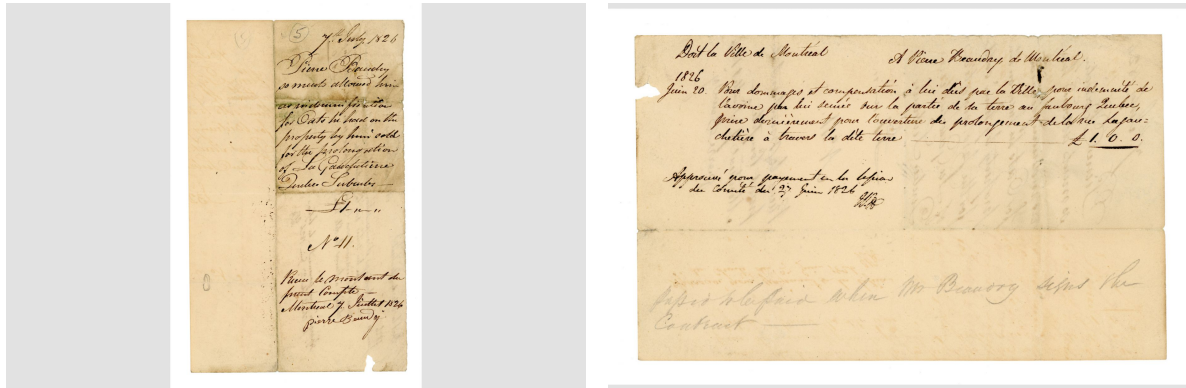 5
7th July 1826
Pierre Beaudry
amount allowed him
as indemnification
for Oats he had on the
property by him sold
for the prolongation
of La Gauchetière
Quebec Suburbs —
No 11.
Recu le montant du
Montreal 7 Juillet 1826
pierre Beaudry
Doit la Ville de Montréal
A Pierre Beaudry de Montréal.
1826
Juin 20. Pour dommages et compensation à lui dûs par la Ville pour indemnité de
l'avoine par lui semée sur la partie de sa terre au faubourg Quebec,
prise dernièrement pour l'ouverture du prolongement de la rue Lagau=
chetière à travers la dite terre £ 1. 0. 0.
Approuvé pour payement en la
du Comité du 27 Juin 1826
when Mr Beaudry signs the
Contract —